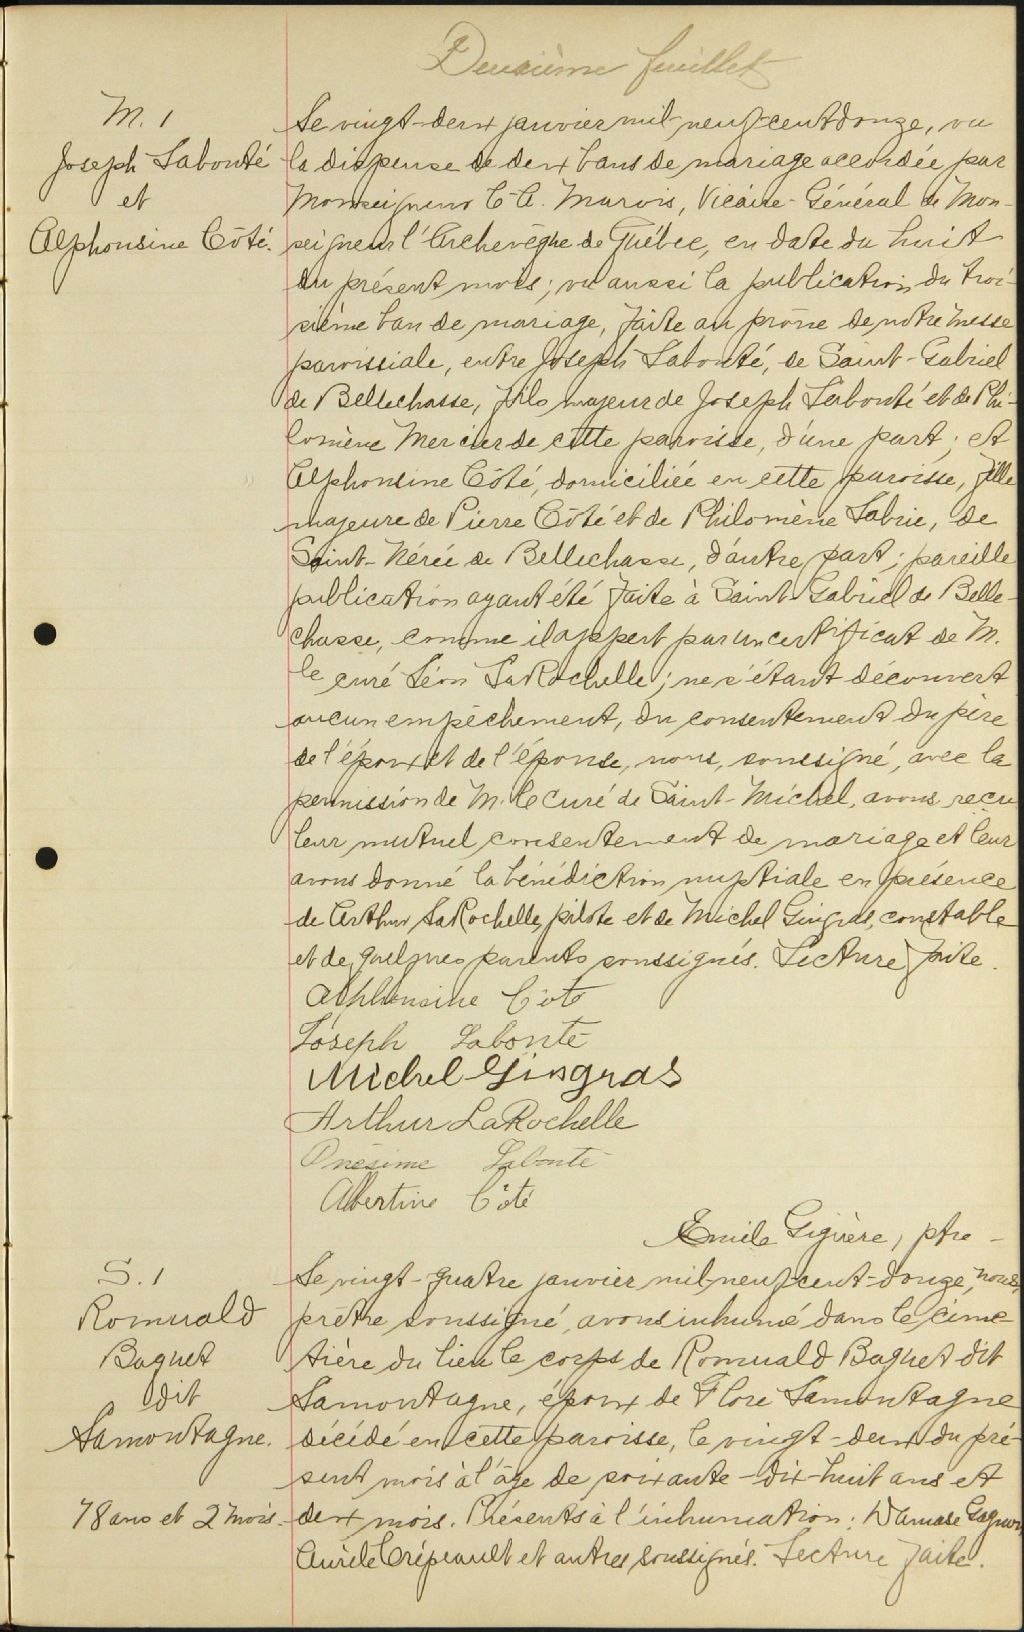 Deuxième feuillet
M. 1
Joseph Labonté
et
Alphonsine Côté.
Le vingt-deux janvier mil-neuf-cent-douze, vu
la dispense de deux bans de mariage accordée par
Monseigneur C-A. Marois, Vicaire-Général de Mon-
seigneur l'Archevêque de Québec, en date du huit
du présent mois; vu aussi la publication du troi-
sième ban de mariage, faite au prône de notre messe
paroissiale, entre Joseph Labonté, de Saint-Gabriel
de Bellechasse, fils majeur de Joseph Labonté et de Phi-
lomène Mercier de cette paroisse, d'une part; et
Alphonsine Côté, domiciliée en cette paroisse, fille
majeure de Pierre Côté et de Philomène Labrie, de
Saint-Nérée de Bellechasse, d'autre part; pareille
publication ayant été faite à Saint-Gabriel de Belle-
chasse, comme il appert par un certificat de M.
le curé Léon LaRochelle; ne s'étant découvert
aucun empêchement, du consentement du père
de l'époux et de l'épouse, nous, soussigné, avec la
permission de M. le Curé de Saint-Michel, avons reçu
leur mutuel consentement de mariage et leur
avons donné la bénédiction nuptiale en présence
de Arthur LaRochelle, pilote et de Michel Gingras, constable
et de quelques parents soussignés. Lecture faite.
Alphonsine Côté
Joseph Labonté
Michel Gingras
Arthur LaRochelle
Onésime Labonté
Albertine Côté
Emile Giguère, ptre -
S. 1
Romuald
Baquet
dit
Lamontagne.
78 ans et 2 mois.
Le vingt-quatre janvier mil-neuf-cent-douze, nous,
prêtre soussigné, avons inhumé dans le cime
tière du lieu le corps de Romuald Baquet dit
Lamontagne, époux de Flore Lamontagne
décédé en cette paroisse, le vingt-deux du pré-
sent mois à l'âge de soixante-dix-huit ans et
deux mois. Présents à l'inhumation: Damase Gagnon
Aurèle Crépeault et autres soussignés. Lecture faite.